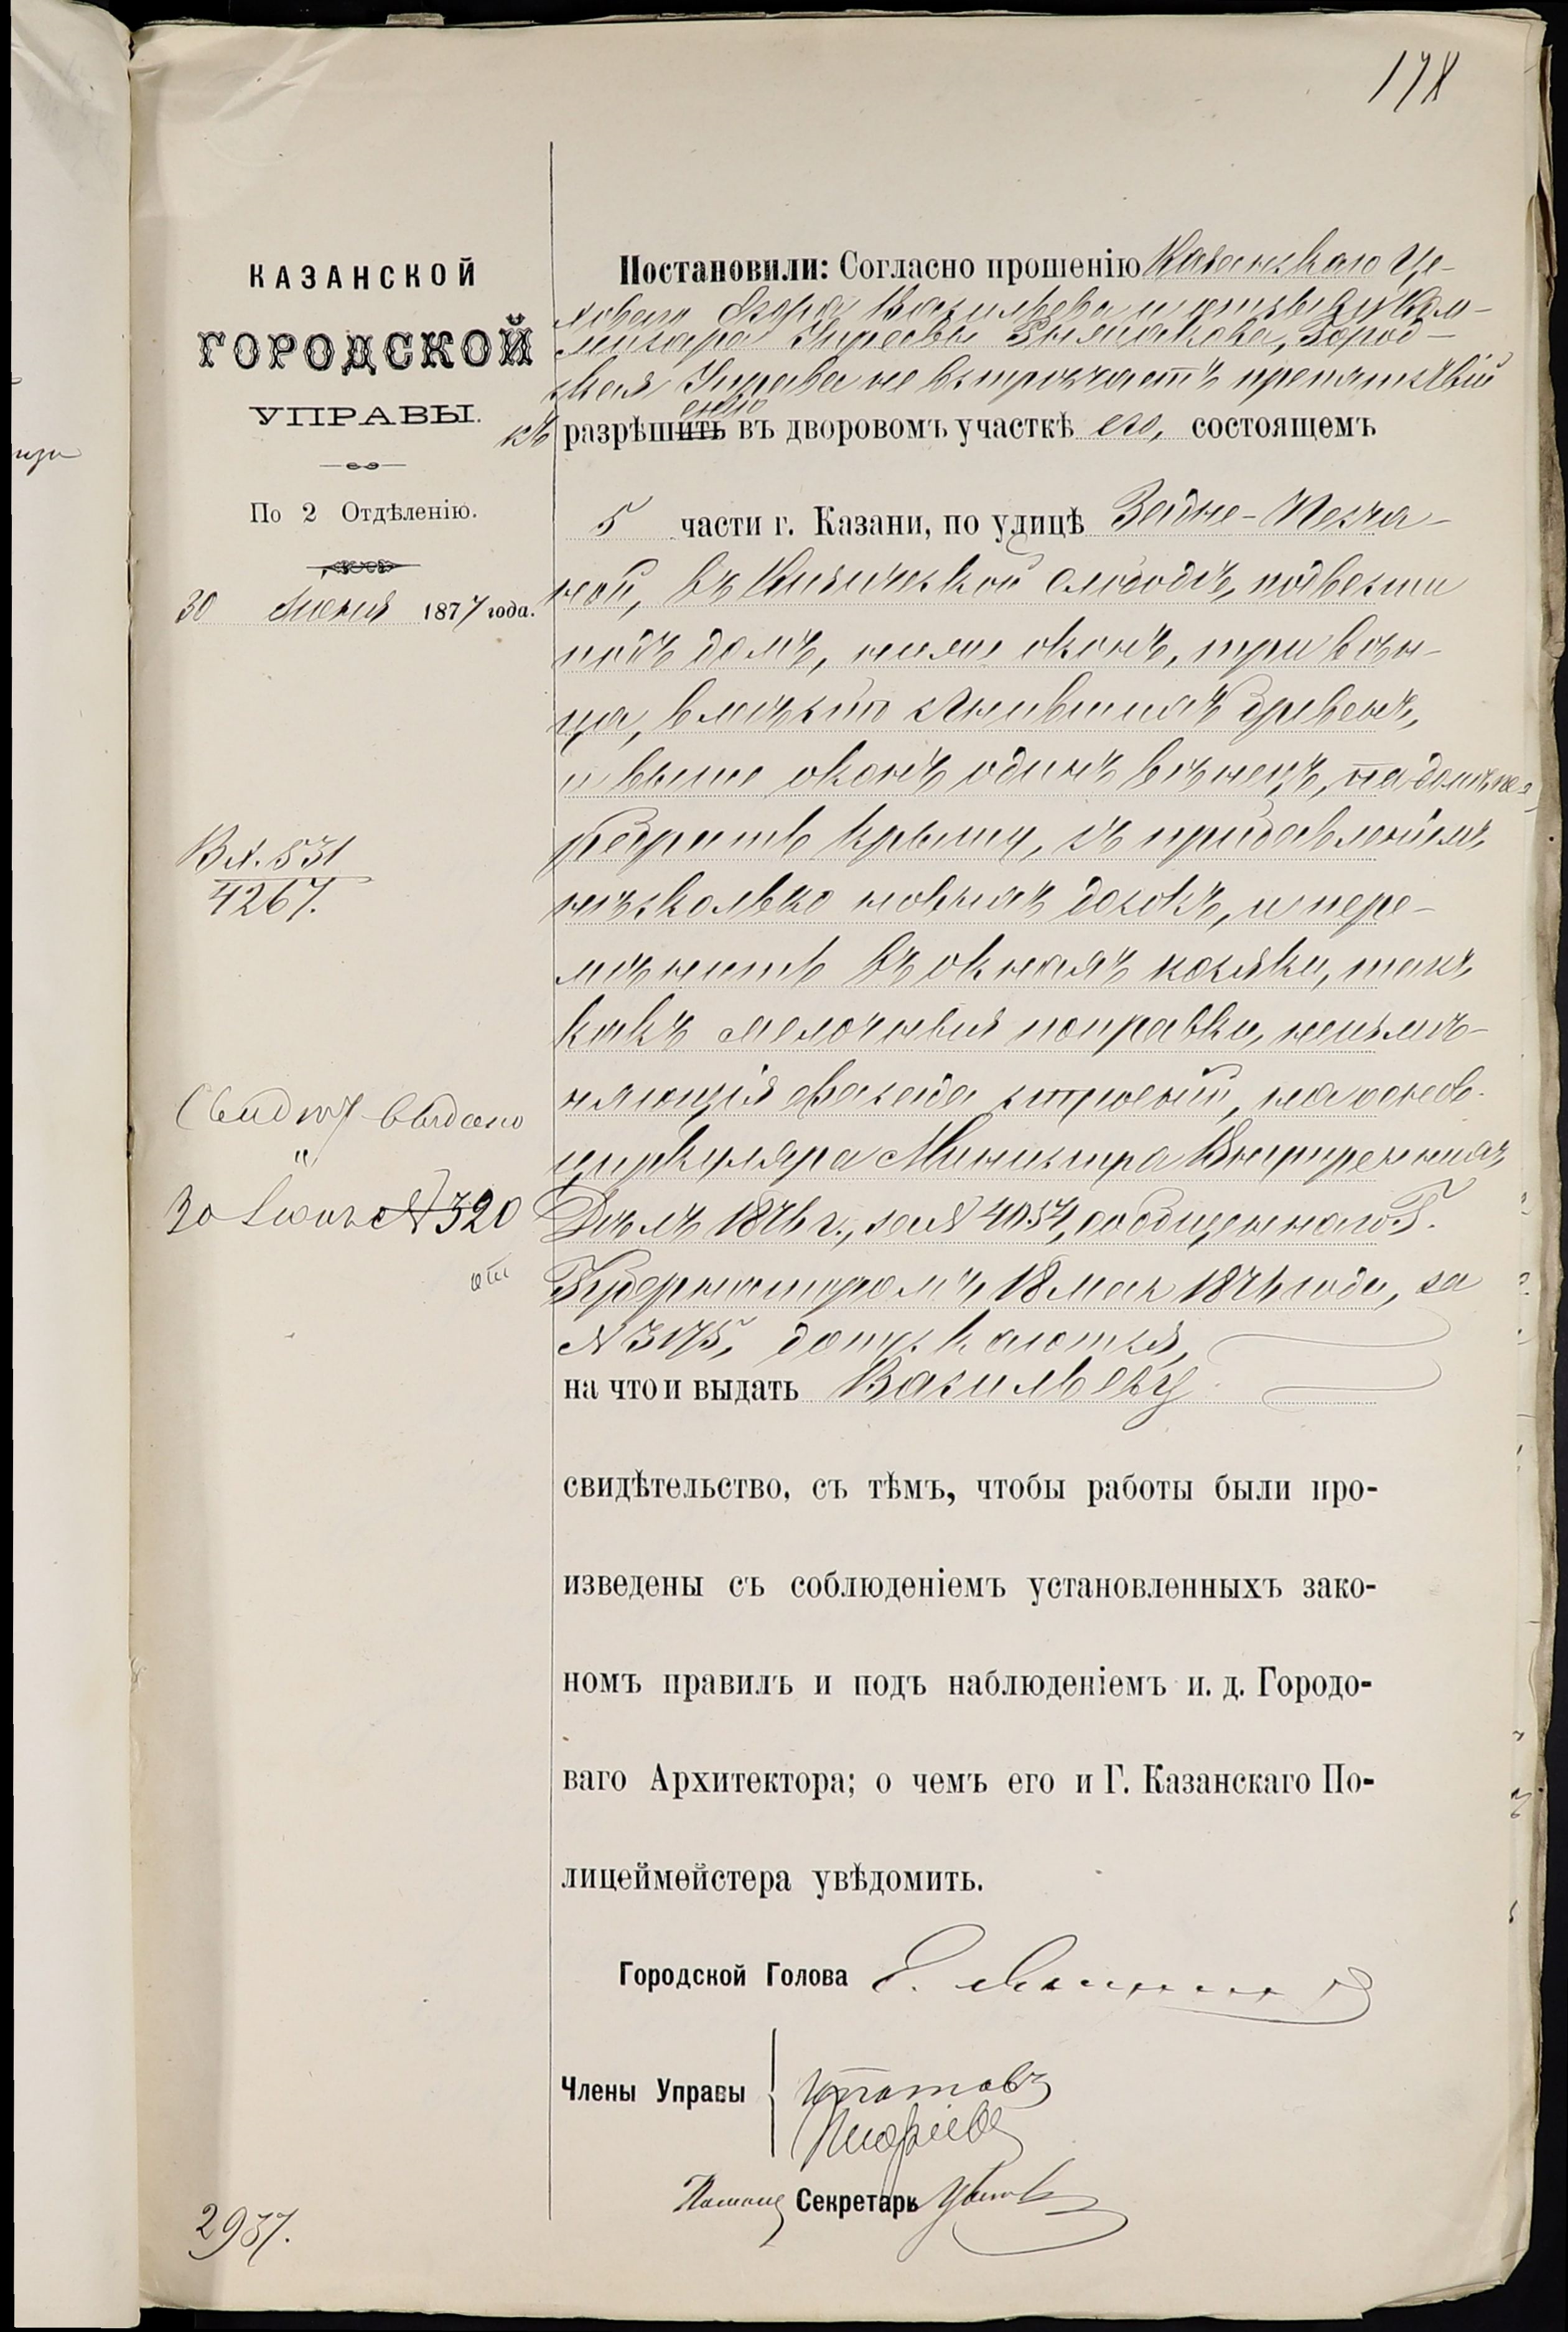 178
КАЗАНСКОЙ
ГОРОДСКОЙ
УПРАВЫ.
По 2 Отдѣленію.
30 Июня 1877 года.
Вх. 531
4267.
Свид № выдано
30 Июня № 320
2937.
Постановили: Согласно прошенію Казанскаго Це-
ховаго Егора Васильева и отзыву Ком-
мисара Управы Рымакова, Город-
ская Управа не встрѣчаетъ препятствій
къ разрѣшить енію въ дворовомъ участкѣ его, состоящемъ
5 части г. Казани, по улицѣ Задне-Песча-
ной, въ Кизической слободѣ, подвести
подъ домъ, ниже оконъ, три вѣн-
ца, вмѣсто сгнившихъ бревенъ,
и выше оконъ одинъ вѣнецъ, на домѣ пе-
ребрать крышу, съ придавленіемъ
нѣсколько новыхъ досокъ, и пере-
мѣнить въ окнахъ косяки, такъ
какъ мелочныя поправки, неизмѣ-
няющія фасада строеній, на основ.
циркуляра Министра Внутреннихъ
Дѣлъ 1876 г., за № 4054, сообщеннаго Г.
Губернаторомъ 18 мая 1876 года, за
№ 3175, допускаются,
на что и выдать Васильеву
свидѣтельство, съ тѣмъ, чтобы работы были про-
изведены съ соблюденіемъ установленныхъ зако-
номъ правилъ и подъ наблюденіемъ и. д. Городо-
ваго Архитектора; о чемъ его и Г. Казанскаго По-
лицеймейстера увѣдомить.
Городской Голова
Члены Управы
Помощ Секретарь